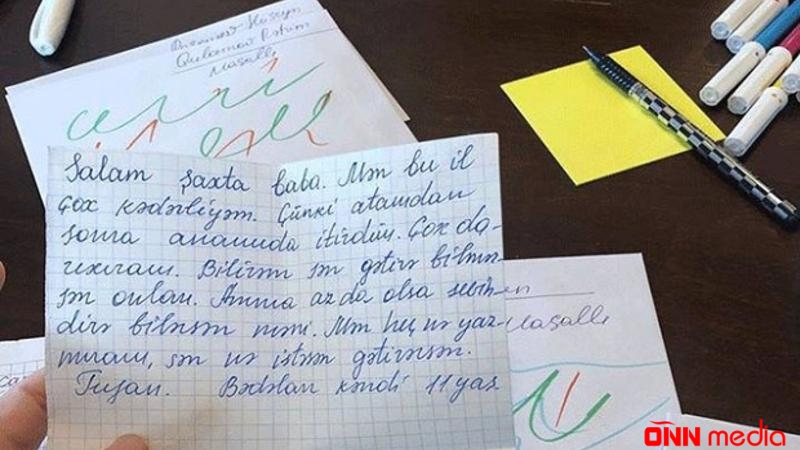 Hüseyn
Qulamov Rəhim
Masallı
Salam Şaxta baba. Mən bu il
çox kədərliyəm. Çünki atamdan
sonra anamıda itirdim. Çox da-
rıxıram. Bilirəm sən gətirə bilmir-
sən onları. Amma az da olsa sevin-
dirə bilərsən məni. Mən heç nə yaz-
mıram, sən nə istəsən gətirərsən.
Tuşan. Bədəlan kəndi 11 yaş
Masallı
ONN media